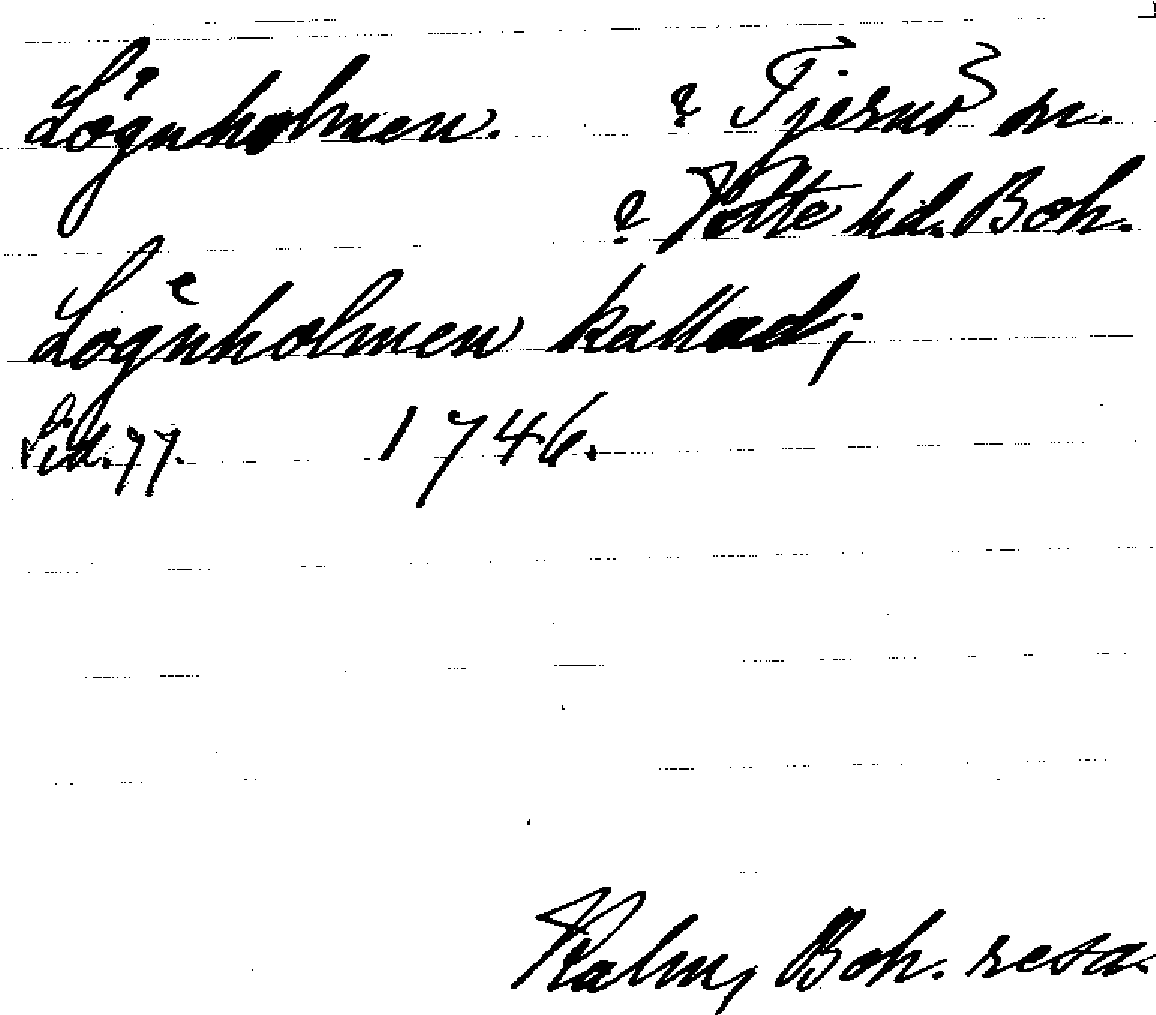 Lögnholmen. ? Tjernö sn.
? Vette hd. Boh.
Lognholmen kallad;
Sid. 77. 1746.
Kalm, Boh. resa.